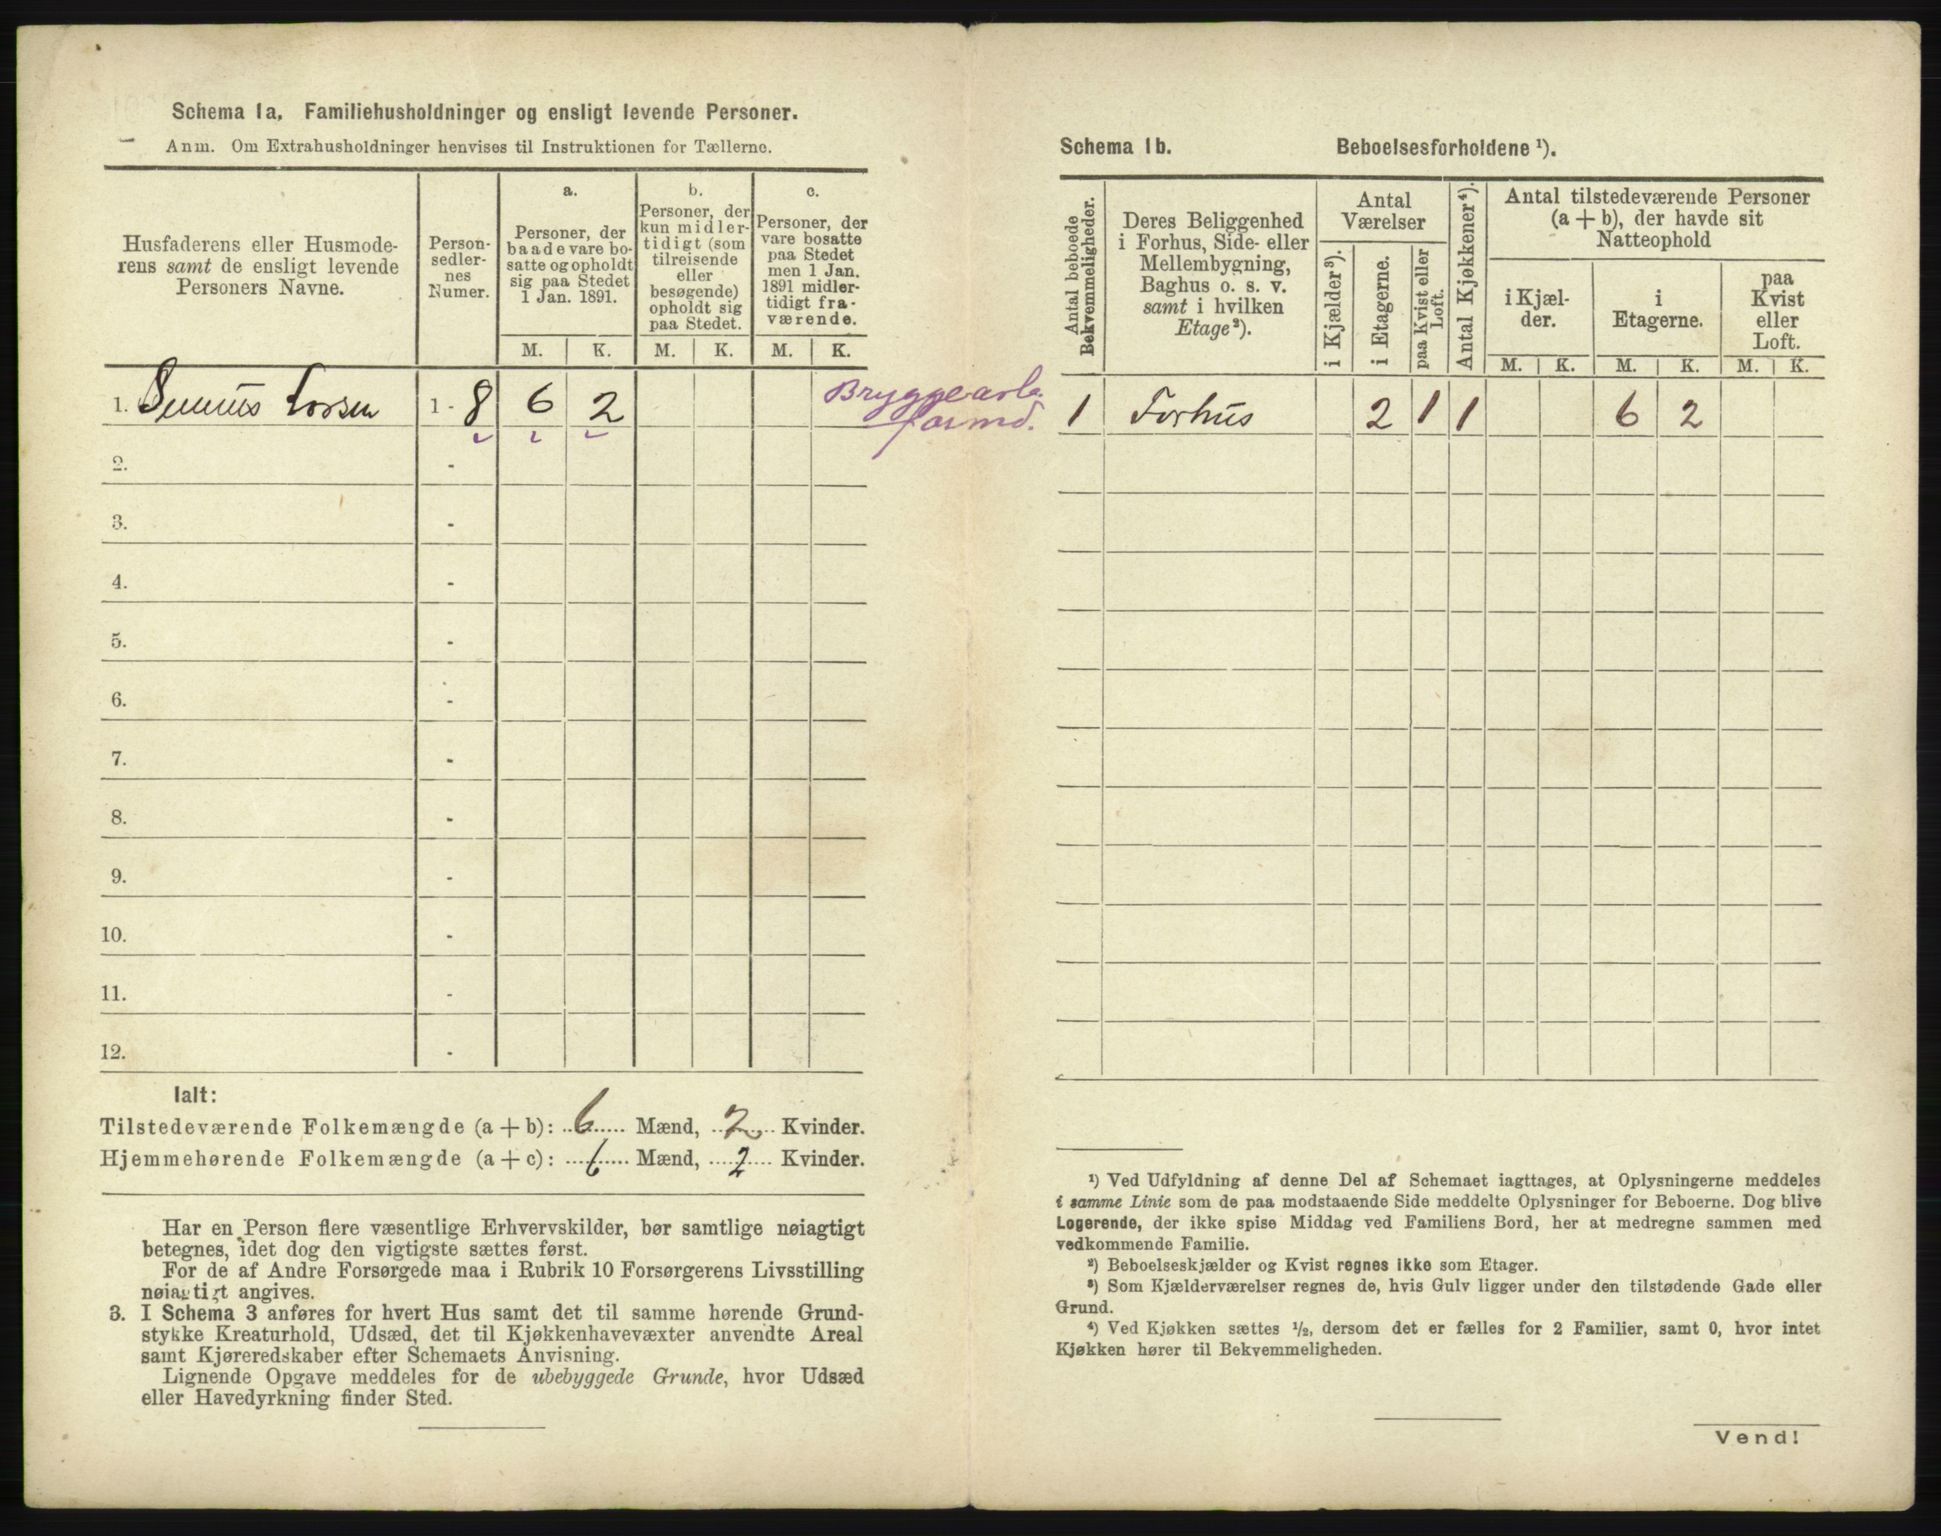 Schema 1a. Familiehusholdninger og ensligt levende Personer.
Anm. Om Extrahusholdninger henvises til Instruktionen for Tællerne.
Husfaderens eller Husmode-
rens samt de ensligt levende
Personers Navne.
Person-
sedler-
nes
Numer.
a.
Personer, der
baade vare bo-
satte og opholdt
sig paa Stedet
1 Jan. 1891.
b.
Personer, der
kun midler-
tidigt (som
tilreisende
eller
besøgende)
opholdt sig
paa Stedet.
c.
Personer, der
vare bosatte
paa Stedet
men 1 Jan.
1891 midler-
tidigt fra-
værende.
M. K. M. K. M. K.
1. Larsen 1 - 8 6 2
Bryggearb.
formd.
2. -
3. -
4. -
5. -
6. -
7. -
8. -
9. -
10. -
11. -
12. -
Ialt:
Tilstedeværende Folkemængde (a + b): 6 Mænd, 2 Kvinder.
Hjemmehørende Folkemængde (a + c): 6 Mænd, 2 Kvinder.
Har en Person flere væsentlige Erhvervskilder, bør samtlige nøiagtigt
betegnes, idet dog den vigtigste sættes først.
For de af Andre Forsørgede maa i Rubrik 10 Forsørgerens Livsstilling
nøiagtigt angives.
3. I Schema 3 anføres for hvert Hus samt det til samme hørende Grund-
stykke Kreaturhold, Udsæd, det til Kjøkkenhavevæxter anvendte Areal
samt Kjøreredskaber efter Schemaets Anvisning.
Lignende Opgave meddeles for de ubebyggede Grunde, hvor Udsæd
eller Havedyrkning finder Sted.
Schema 1b. Beboelsesforholdene ¹).
Antal beboede
Bekvemmeligheder.
Deres Beliggenhed
i Forhus, Side- eller
Mellembygning,
Baghus o. s. v.
samt i hvilken
Etage²).
Antal
Værelser
i Kjælder³).
i Etagerne.
paa Kvist eller
Loft.
Antal Kjøkkener⁴).
Antal tilstedeværende Personer
(a + b), der havde sit
Natteophold
i Kjæl-
der.
i
Etagerne.
paa
Kvist
eller
Loft.
M. K. M. K. M. K.
1 Forhus 2 1 1 6 2
¹) Ved Udfyldning af denne Del af Schemaet iagttages, at Oplysningerne meddeles
i samme Linie som de paa modstaaende Side meddelte Oplysninger for Beboerne. Dog blive
Logerende, der ikke spise Middag ved Familiens Bord, her at medregne sammen med
vedkommende Familie.
²) Beboelseskjælder og Kvist regnes ikke som Etager.
³) Som Kjælderværelser regnes de, hvis Gulv ligger under den tilstødende Gade eller
Grund.
⁴) Ved Kjøkken sættes ½, dersom det er fælles for 2 Familier, samt 0, hvor intet
Kjøkken hører til Bekvemmeligheden.
Vend!